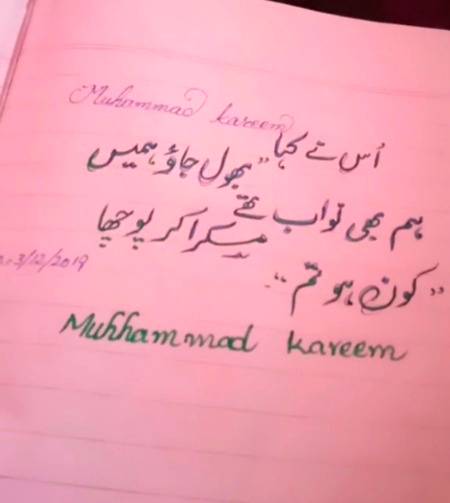 Muhammad kareem
اُس نے کہا "بھول جاؤ ہمیں
ہم بھی نواب تھے مسکرا کر پوچھا
3/12/2019
"کون ہو تم"۔
Muhhammad kareem